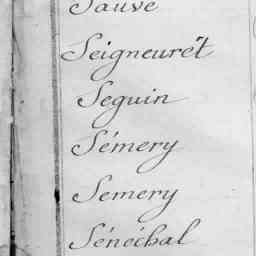 Sauvé
Seigneurét
Seguin
Sémery
Semery
Sénéchal